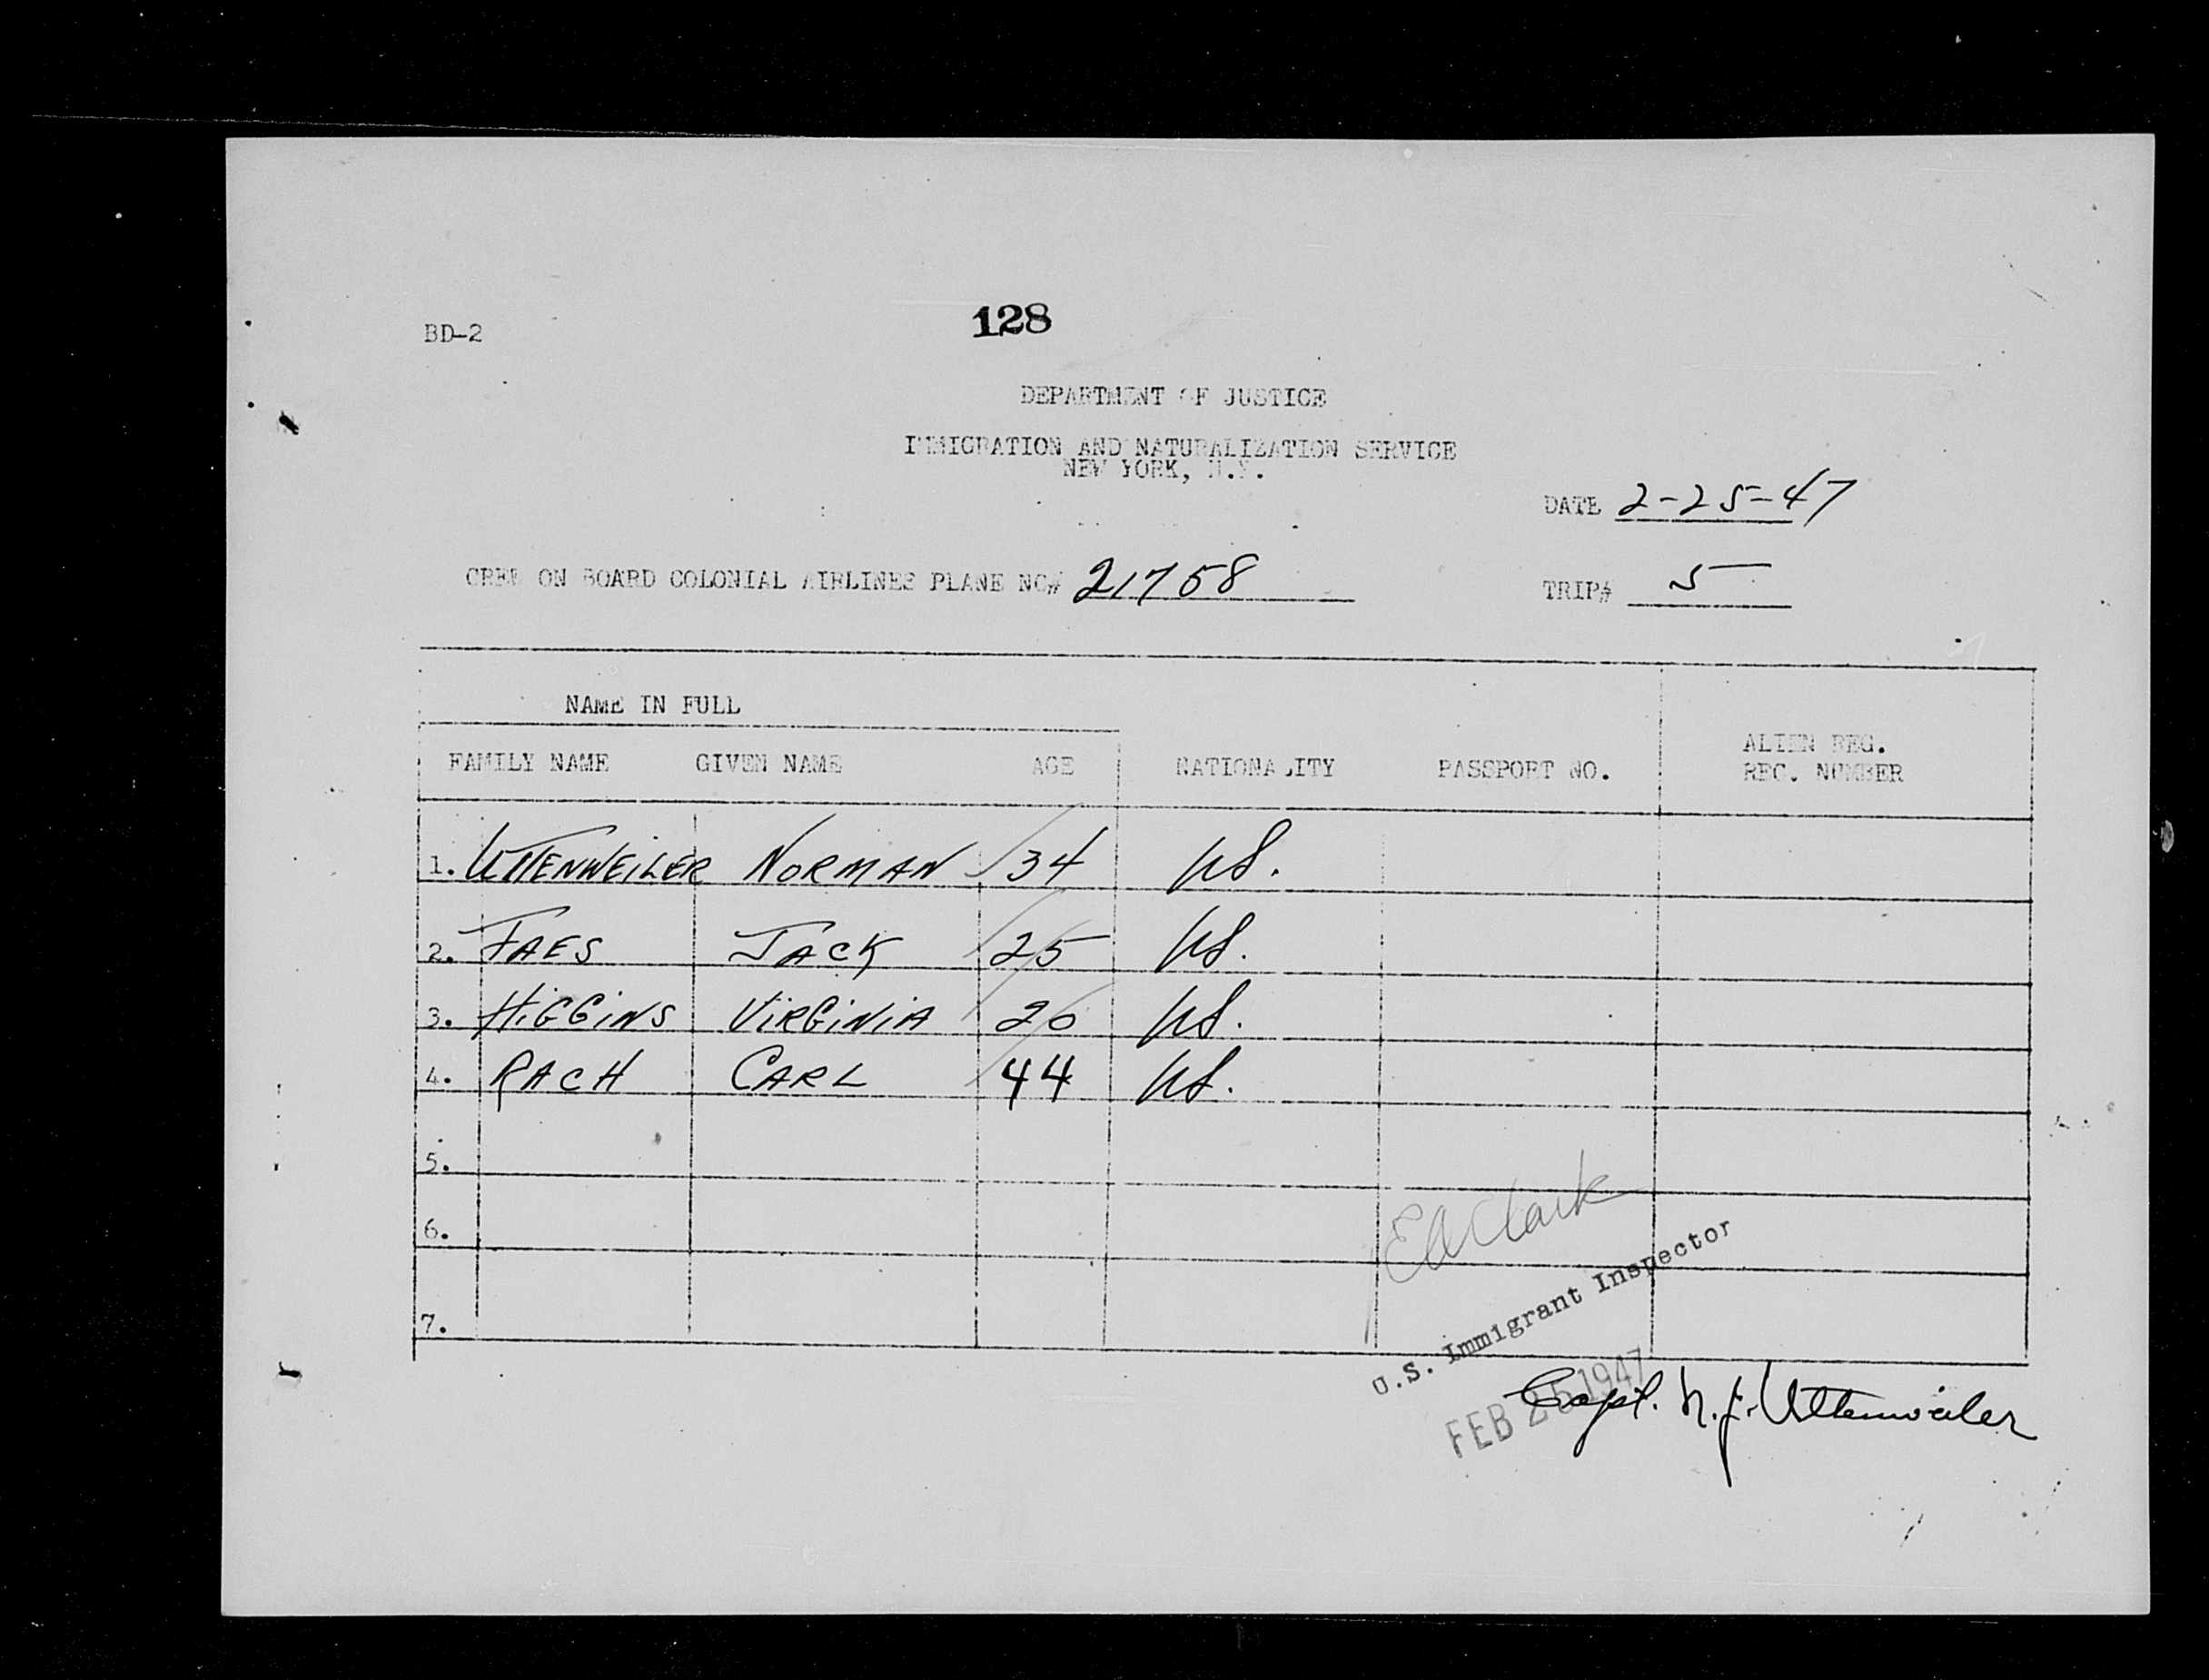 BD-2
128
DEPARTMENT OF JUSTICE
IMMIGRATION AND NATURALIZATION SERVICE
NEW YORK, N.Y.
DATE 2-25-47
CREW ON BOARD COLONIAL AIRLINES PLANE NO# 21758
TRIP# 5
NAME IN FULL
FAMILY NAME GIVEN NAME AGE NATIONALITY PASSPORT NO. ALIEN REG. REC. NUMBER
1. UTTENWEILER NORMAN 34 US.
2. FAES JACK 25 US.
3. HIGGINS VIRGINIA 20 US.
4. RACH CARL 44 US.
5.
6.
7.
EA Clark
U.S. Immigrant Inspector
FEB 25 1947
Capt. N. J. Uttenweiler